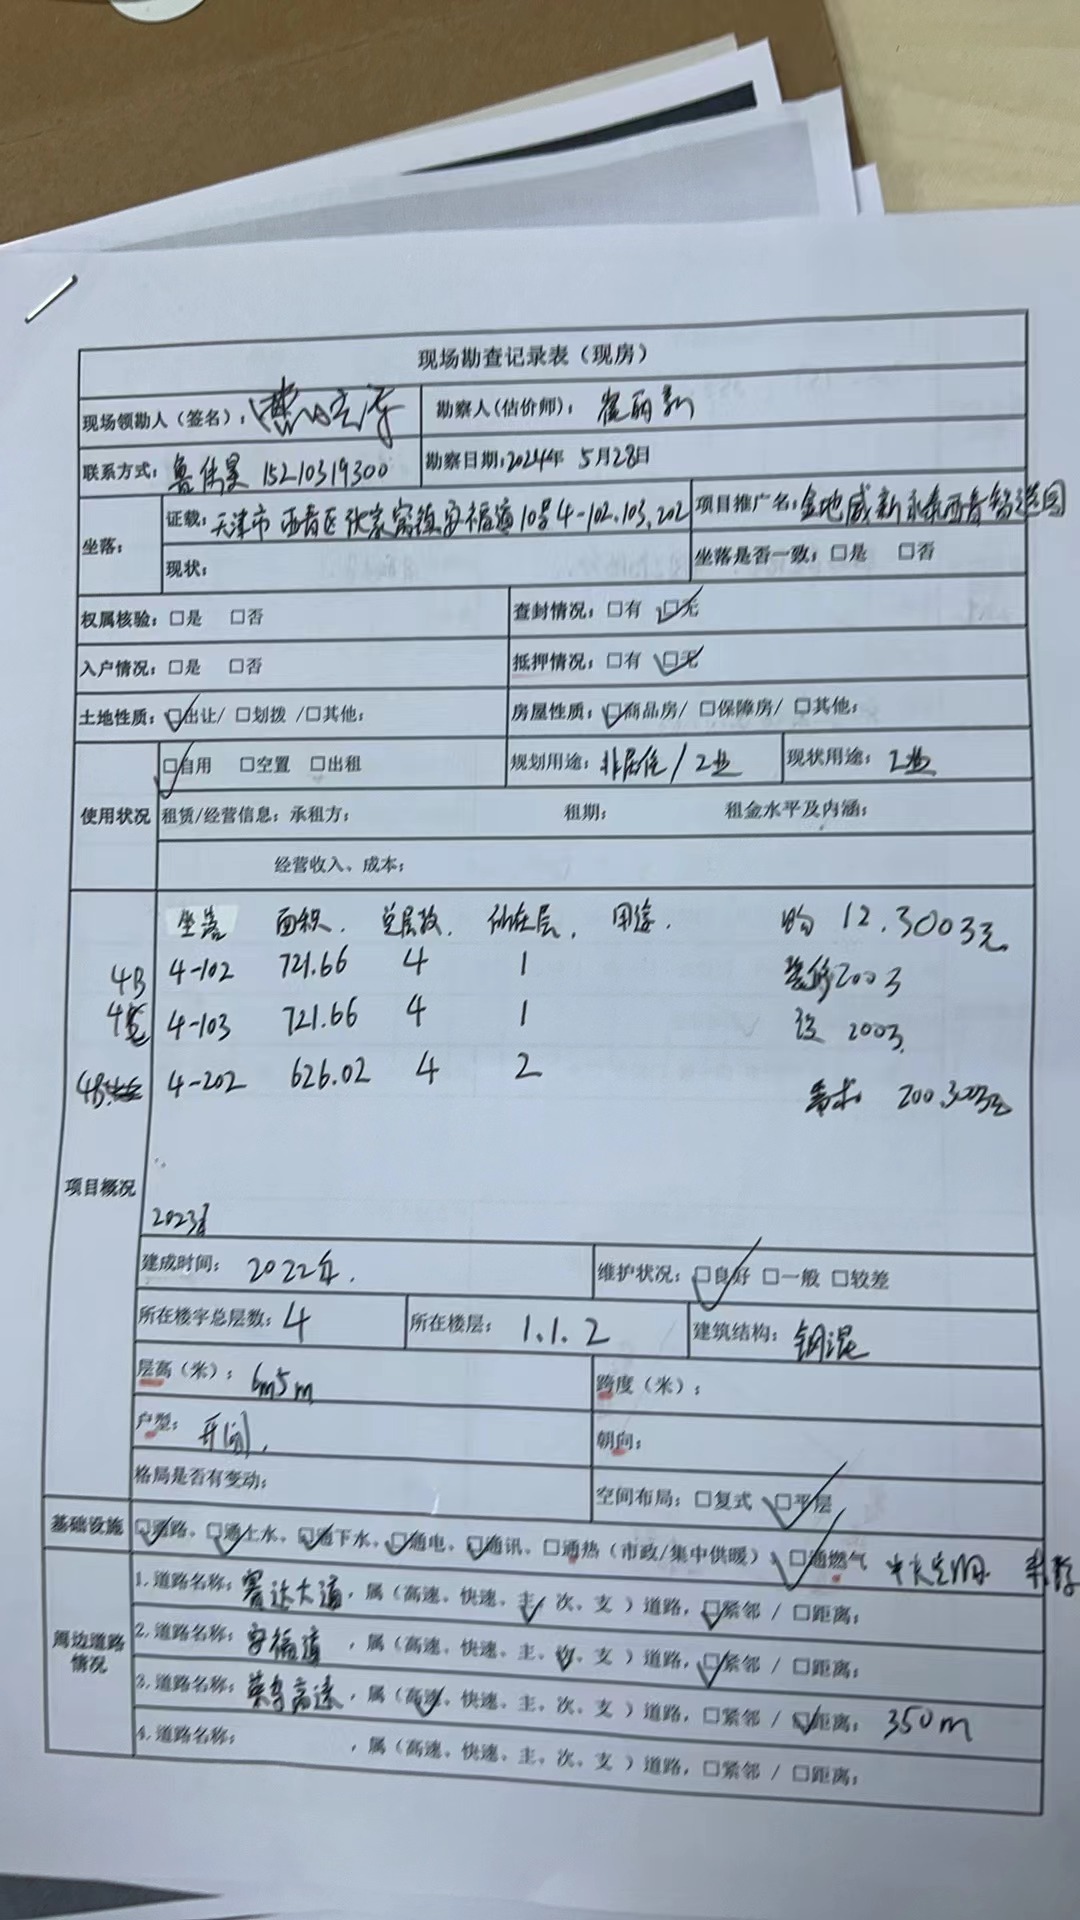 现场勘查记录表（现房）
现场领勘人（签名）： 勘察人（估价师）：崔丽新
联系方式：鲁伟昊 15210319300 勘察日期：2024年 5月28日
坐落： 证载：天津市西青区张家窝镇安福道10号4-102.103.202 项目推广名：金地威新永泰西青智造园
现状： 坐落是否一致：□是 □否
权属核验：□是 □否 查封情况：□有 □无
入户情况：□是 □否 抵押情况：□有 □无
土地性质：□出让/ □划拨 /□其他： 房屋性质：□商品房/ □保障房/ □其他：
使用状况 □自用 □空置 □出租 规划用途：非居住/工业 现状用途：工业
租赁/经营信息：承租方： 租期： 租金水平及内涵：
经营收入、成本：
坐落 面积. 总层数. 所在层. 用途. 购 12.3003元
4B 4-102 721.66 4 1 装修2003
4 4-103 721.66 4 1 2003.
4B 4-202 626.02 4 2
项目概况
2023
建成时间：2022年. 维护状况：□良好 □一般 □较差
所在楼宇总层数：4 所在楼层：1.1.2 建筑结构：钢混
层高（米）：6m5m 跨度（米）：
户型：开间. 朝向：
格局是否有变动： 空间布局：□复式 □平层
基础设施 □通路、□通上水、□通下水、□通电、□通讯、□通热（市政/集中供暖）、□通燃气 中央空调
周边道路情况 1.道路名称：赛达大道，属（高速、快速、主、次、支）道路，□紧邻 / □距离：
2.道路名称：安福道，属（高速、快速、主、次、支）道路，□紧邻 / □距离：
3.道路名称：荣乌高速，属（高速、快速、主、次、支）道路，□紧邻 / □距离：350m
4.道路名称： ，属（高速、快速、主、次、支）道路，□紧邻 / □距离：